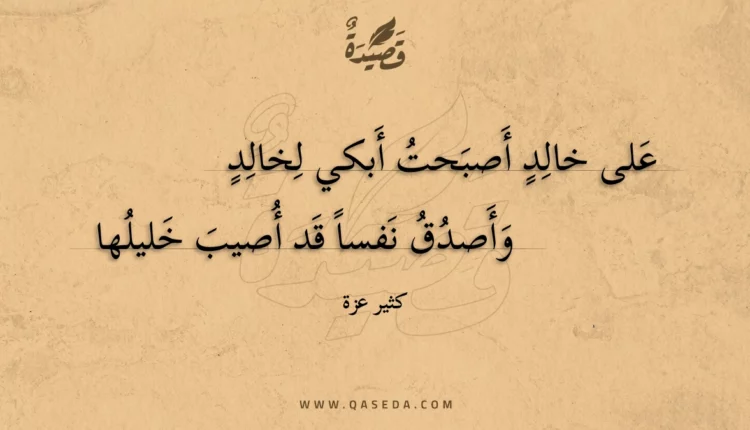 قَصِيدَةٌ
عَلى خالِدٍ أَصبَحتُ أَبكي لِخالِدٍ
وَأَصدُقُ نَفساً قَد أُصيبَ خَليلُها
كثير عزة
WWW.QASEDA.COM